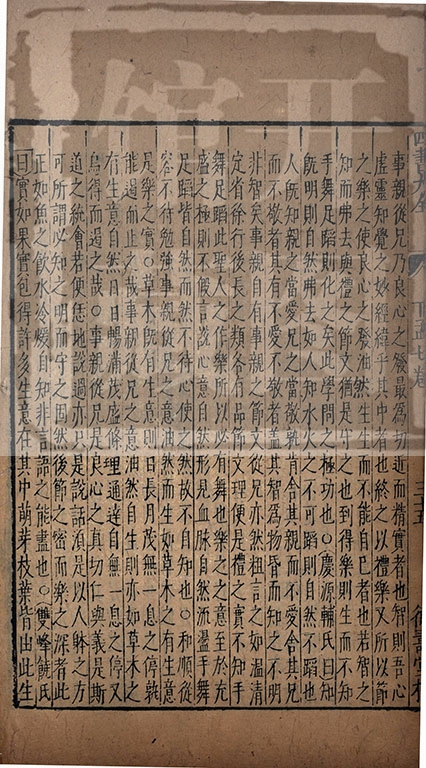 事親從兄乃良心之發最為切近而精實者也智則吾心
虛靈知覺之妙經緯乎其中者也終之以禮樂又所以節
之樂之使良心之發油然生生而不能自已者也若智之
知而弗去與禮之節文猶是守之也到得樂則生而不知
手舞足蹈則化之矣此學問之極功也○慶源輔氏曰知
既明則自然弗去如人知水火之不可蹈則自然不蹈也
人既知親之當愛兄之當敬孰肯舍其親而不愛舍其兄
而不敬者其有不愛不敬者蓋其智為物昏而知之不明
非智矣事親自有事親之節文從兄亦然粗言之如溫清
定省徐行後長之類各有品節文理便是禮之實不知手
舞足蹈此聖人之作樂所以有舞也樂之之意至於充
盛之極則不假言說心意自然形見血脉自然流盪手舞
足蹈皆自然而然不待心使之然故不自知也○和順從
容不待勉強事親從兄之意油然而生如草木之有生意
是樂之實○草木既有生意則日長月茂無一息之停孰
能遏而止之哉事親從兄之意油然自生則亦如草木之
有生意自然日日暢滿茂盛條理通達自無一息之停又
烏得而遏之哉○事親從兄是良心之真切仁與義是斯
道之統會若便恁地說過亦只是說話須是以人躰之方
可所謂必知之明而守之固然後節之密而樂之深者此
正如魚之飲水冷煖自知非言語之能盡也○雙峰饒氏
曰實如果實包得許多生意在其中萌芽枝葉皆由此生
四書大全
下孟七卷
三十五